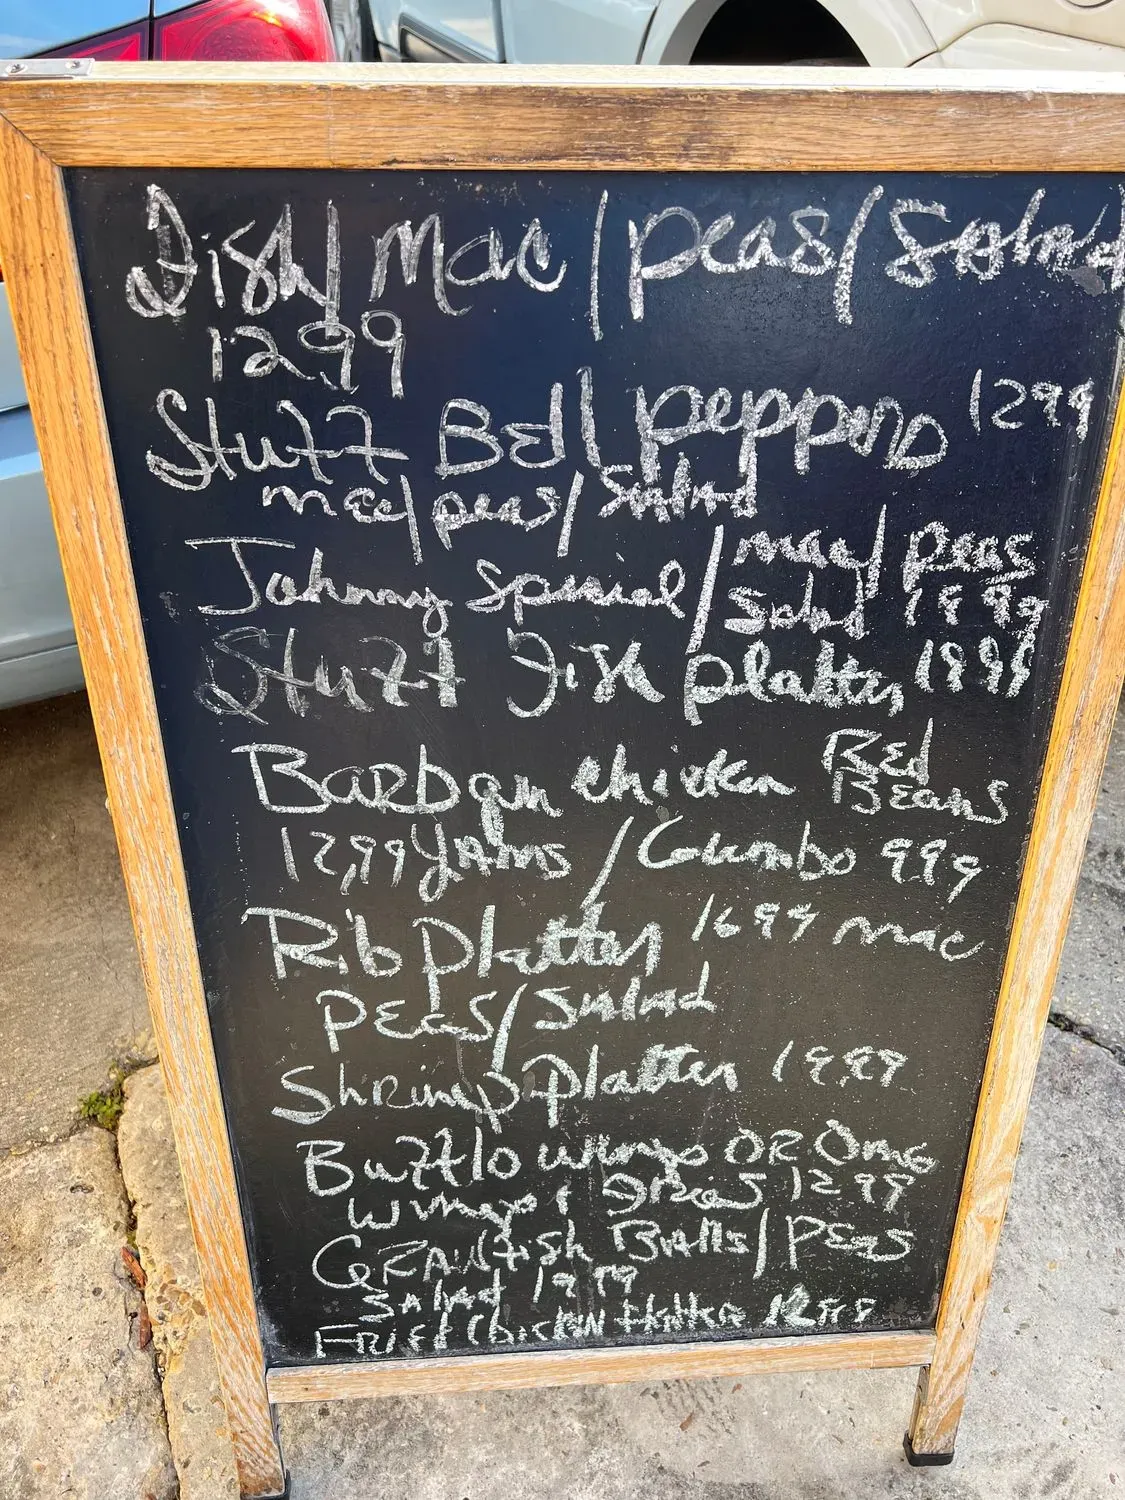 Fish/Mac/peas/Salad
1299
Stuff Bell peppers 1299
mac/peas/Salad
Johnny Special/mac/peas
Salad 1899
Stuff Fish platter 1999
Barbqu chicken Red
Beans
1299 yams/Gumbo 999
Rib platter 1699 mac
PEas/Salad
Shrimp platter 1999
Bufflo wings OR
Wings & Fries 1299
CRAwfish Balls/PEas
SAlad 1999
FRiEd ChickEN